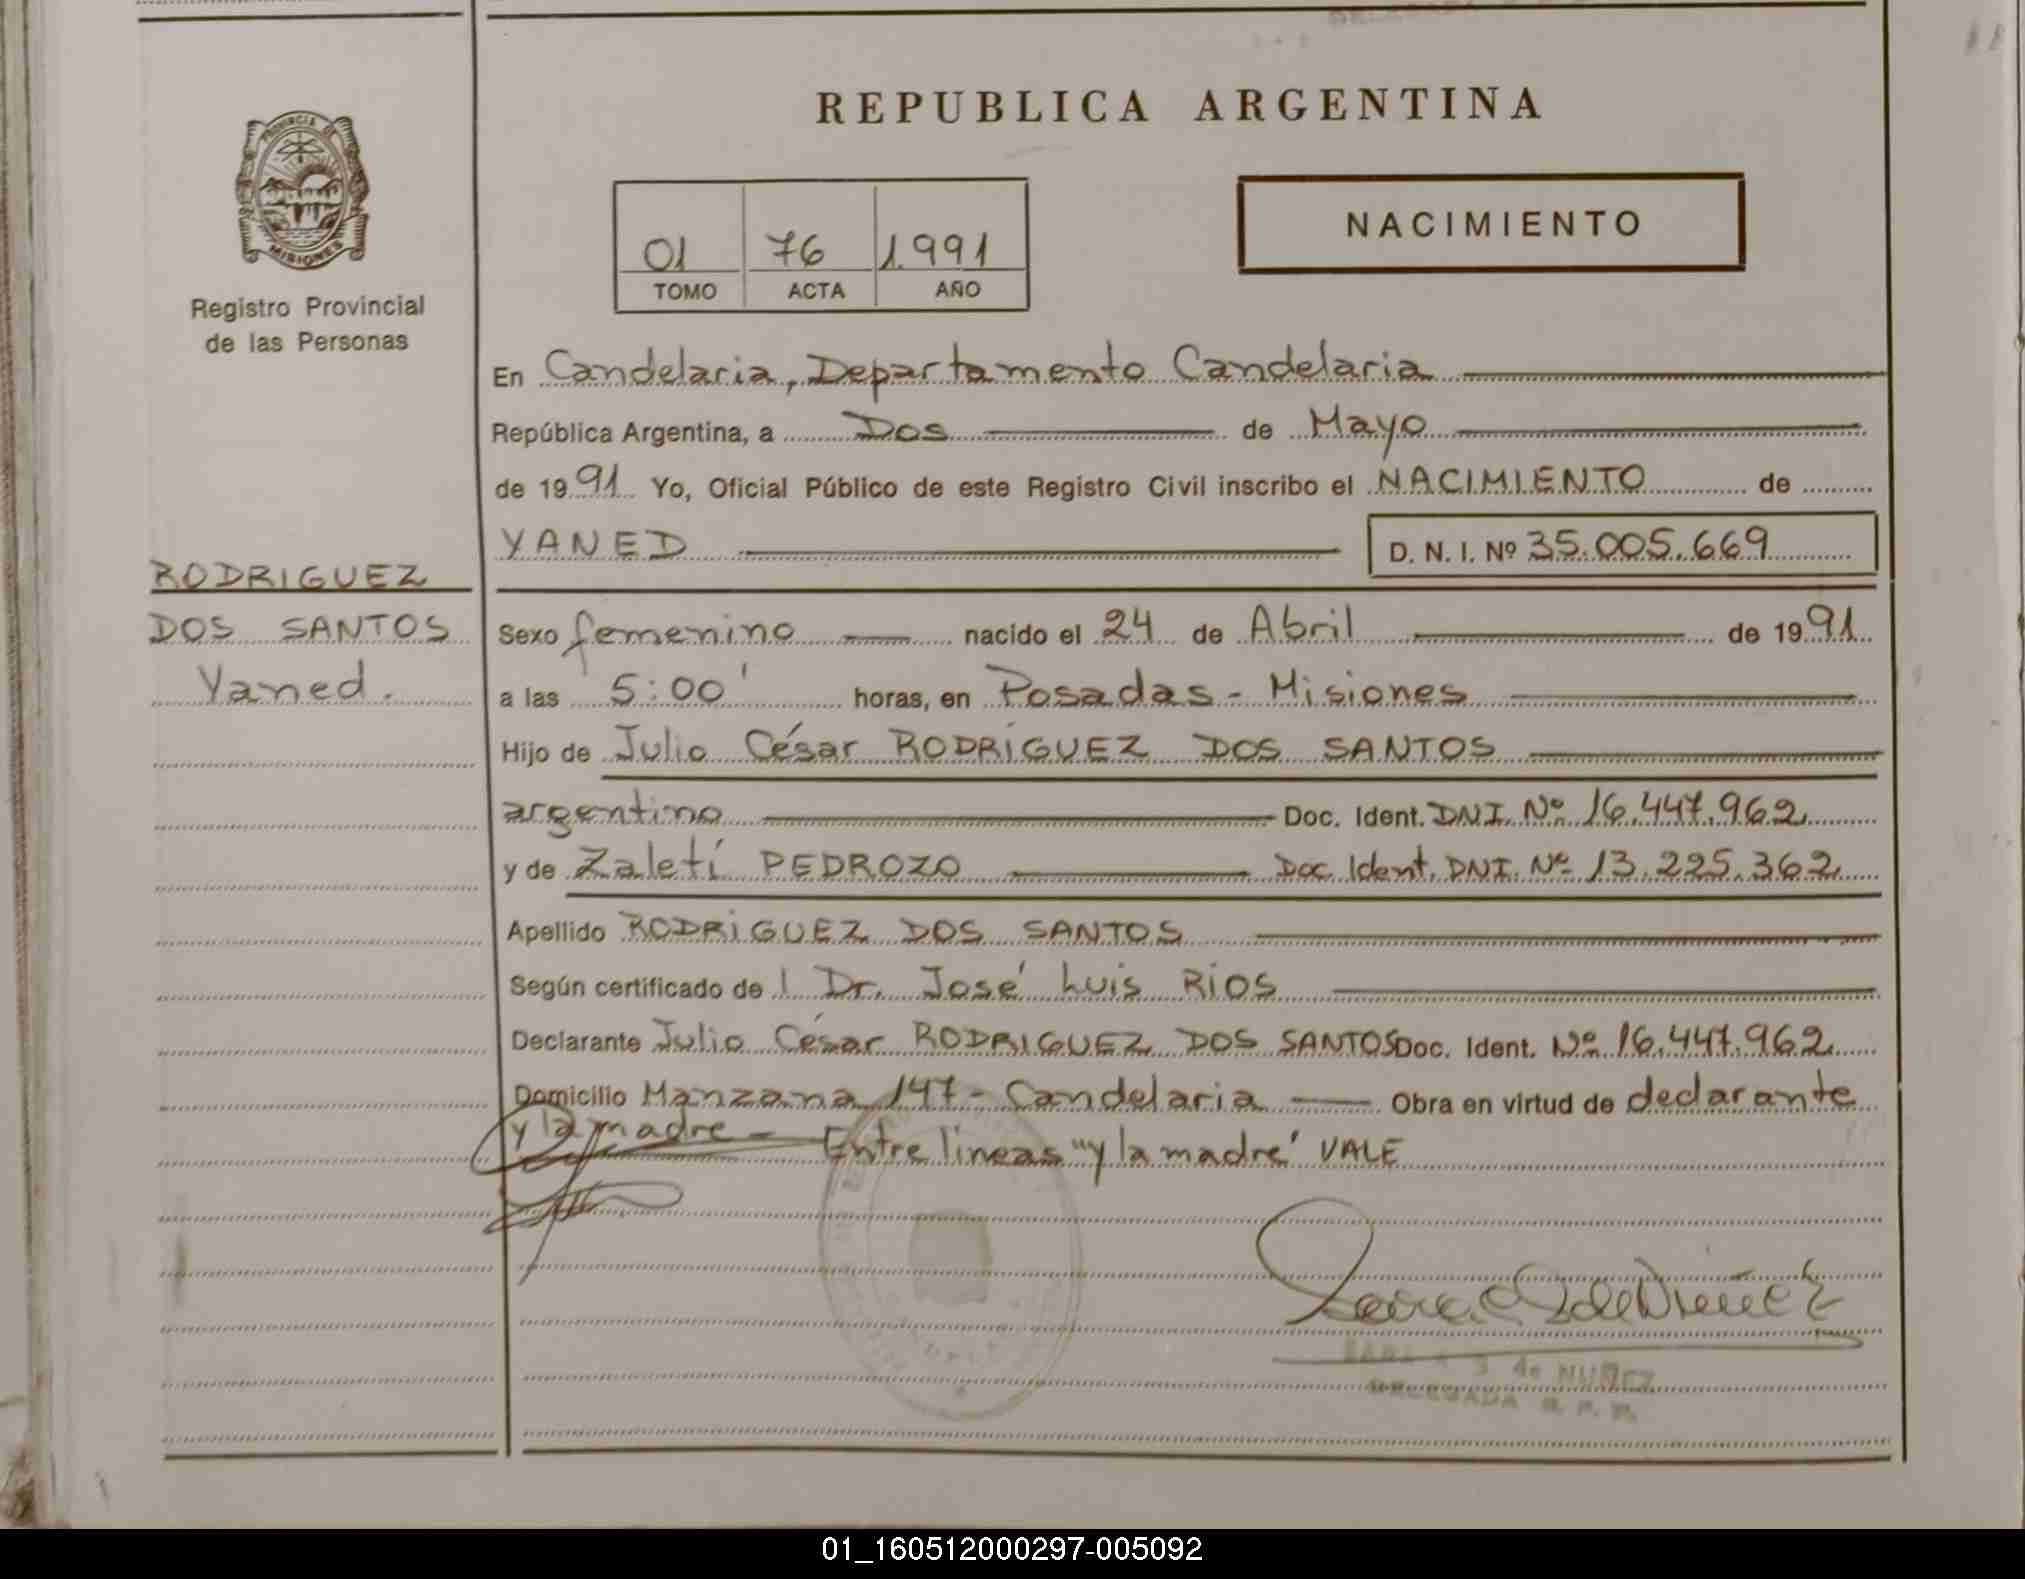 REPUBLICA ARGENTINA
PROVINCIA DE
MISIONES
Registro Provincial
de las Personas
NACIMIENTO
01 76 1.991
TOMO ACTA AÑO
En Candelaria, Departamento Candelaria
República Argentina, a Dos de Mayo
de 1991 Yo, Oficial Público de este Registro Civil inscribo el NACIMIENTO de
YANED D. N. I. Nº 35.005.669
RODRIGUEZ
DOS SANTOS
Yaned.
Sexo femenino nacido el 24 de Abril de 1991
a las 5:00' horas, en Posadas - Misiones
Hijo de Julio César RODRIGUEZ DOS SANTOS
argentino Doc. Ident. DNI. Nº 16.447.962
y de Zaletí PEDROZO Doc. Ident. DNI. Nº 13.225.362
Apellido RODRIGUEZ DOS SANTOS
Según certificado de l Dr. José Luis RIOS
Declarante Julio César RODRIGUEZ DOS SANTOS Doc. Ident. Nº 16.447.962
Domicilio Manzana 147 - Candelaria Obra en virtud de declarante
y la madre - Entre lineas "y la madre" VALE
de NUÑEZ
DELEGADA R. P. P.
01_160512000297-005092